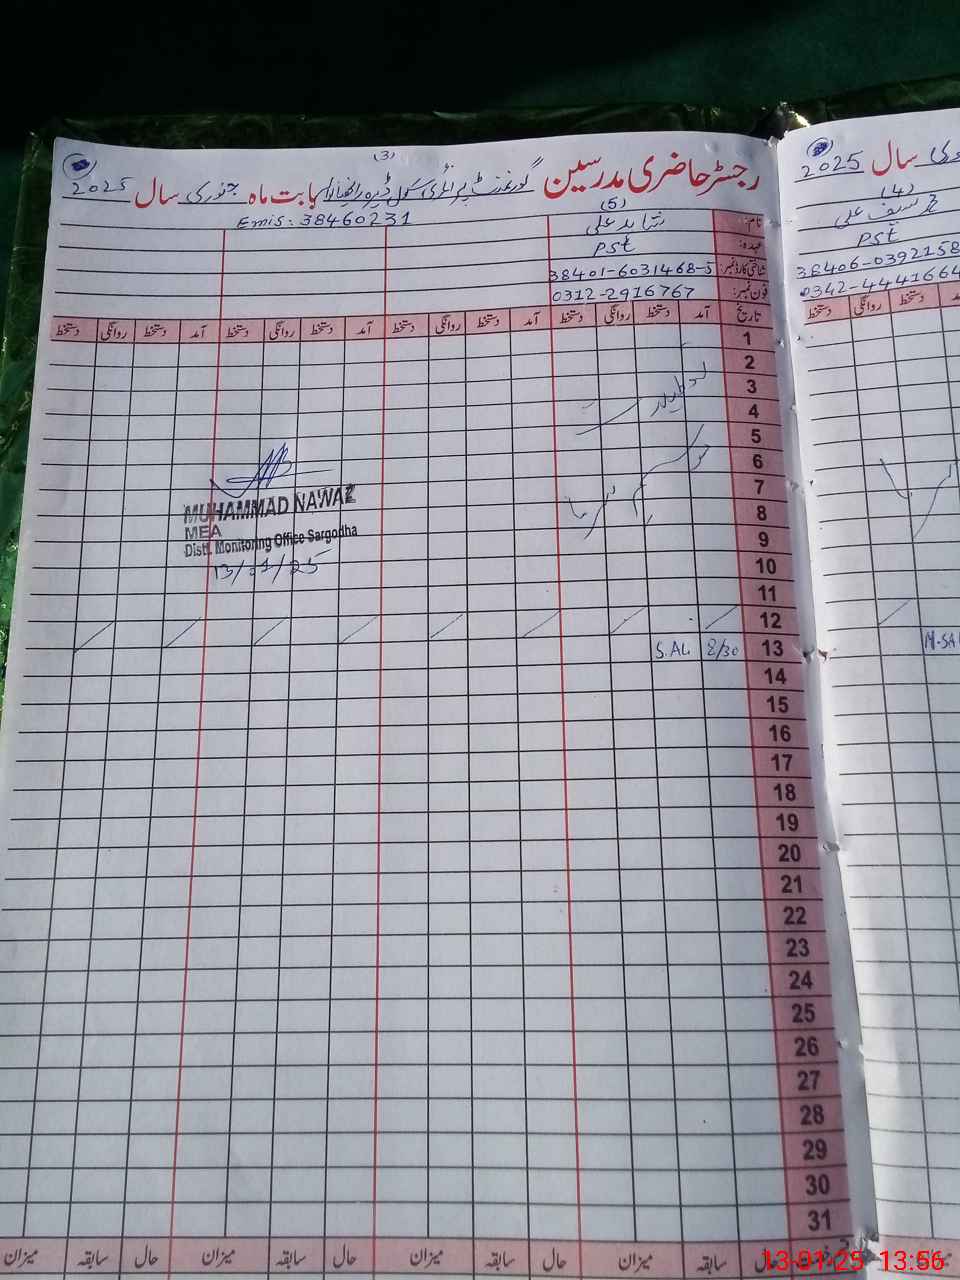 (3)
رجسٹر حاضری مدرسین گورنمنٹ پرائمری سکول ڈیرہ بابت ماہ جنوری سال 2025
Emis: 38460231
(5)
نام: شاہد علی
عہدہ: Pst
شناختی کارڈ نمبر: 38401-6031468-5
فون نمبر: 0312-2916767
تاریخ آمد دستخط روانگی دستخط آمد دستخط روانگی دستخط آمد دستخط روانگی دستخط آمد دستخط روانگی دستخط
1
2
3
4
5
6
7
8
9
10
11
12
13 8/30 S.ALi
14
15
16
17
18
19
20
21
22
23
24
25
26
27
28
29
30
31
موسم سرما
MUHAMMAD NAWAZ
MEA
Distt. Monitoring Office Sargodha
13/01/25
حال سابقہ میزان حال سابقہ میزان حال سابقہ میزان حال سابقہ میزان
سال 2025
(4)
سیف علی
Pst
38406-0392158
0342-4441664
دستخط روانگی دستخط
M.SA
13-01-25 13:56